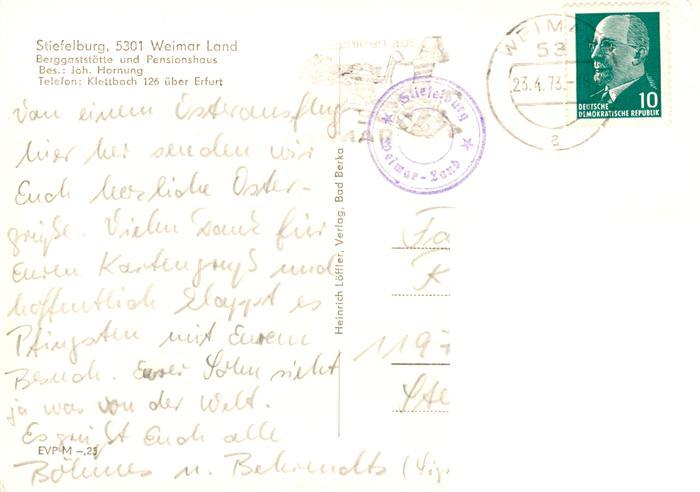 Stiefelburg, 5301 Weimar Land
Berggaststätte und Pensionshaus
Bes.: Joh. Hornung
Telefon: Klettbach 126 über Erfurt
Von einem Osterausflug
hier her senden wir
Euch herzliche Oster-
grüße. Vielen Dank für
Euren Kartengruß und
hoffentlich klappt es
Pfingsten mit Eurem
Besuch. Euer Sohn sieht
ja was von der Welt.
Es grüßt Euch alle
Böhmes u. Behrendts
EVP M –,25
Heinrich Löffler, Verlag, Bad Berka
Stiefelburg
Weimar-Land
WEIMAR
53
23.4.73
a
10
DEUTSCHE
DEMOKRATISCHE REPUBLIK
Fa
K
119